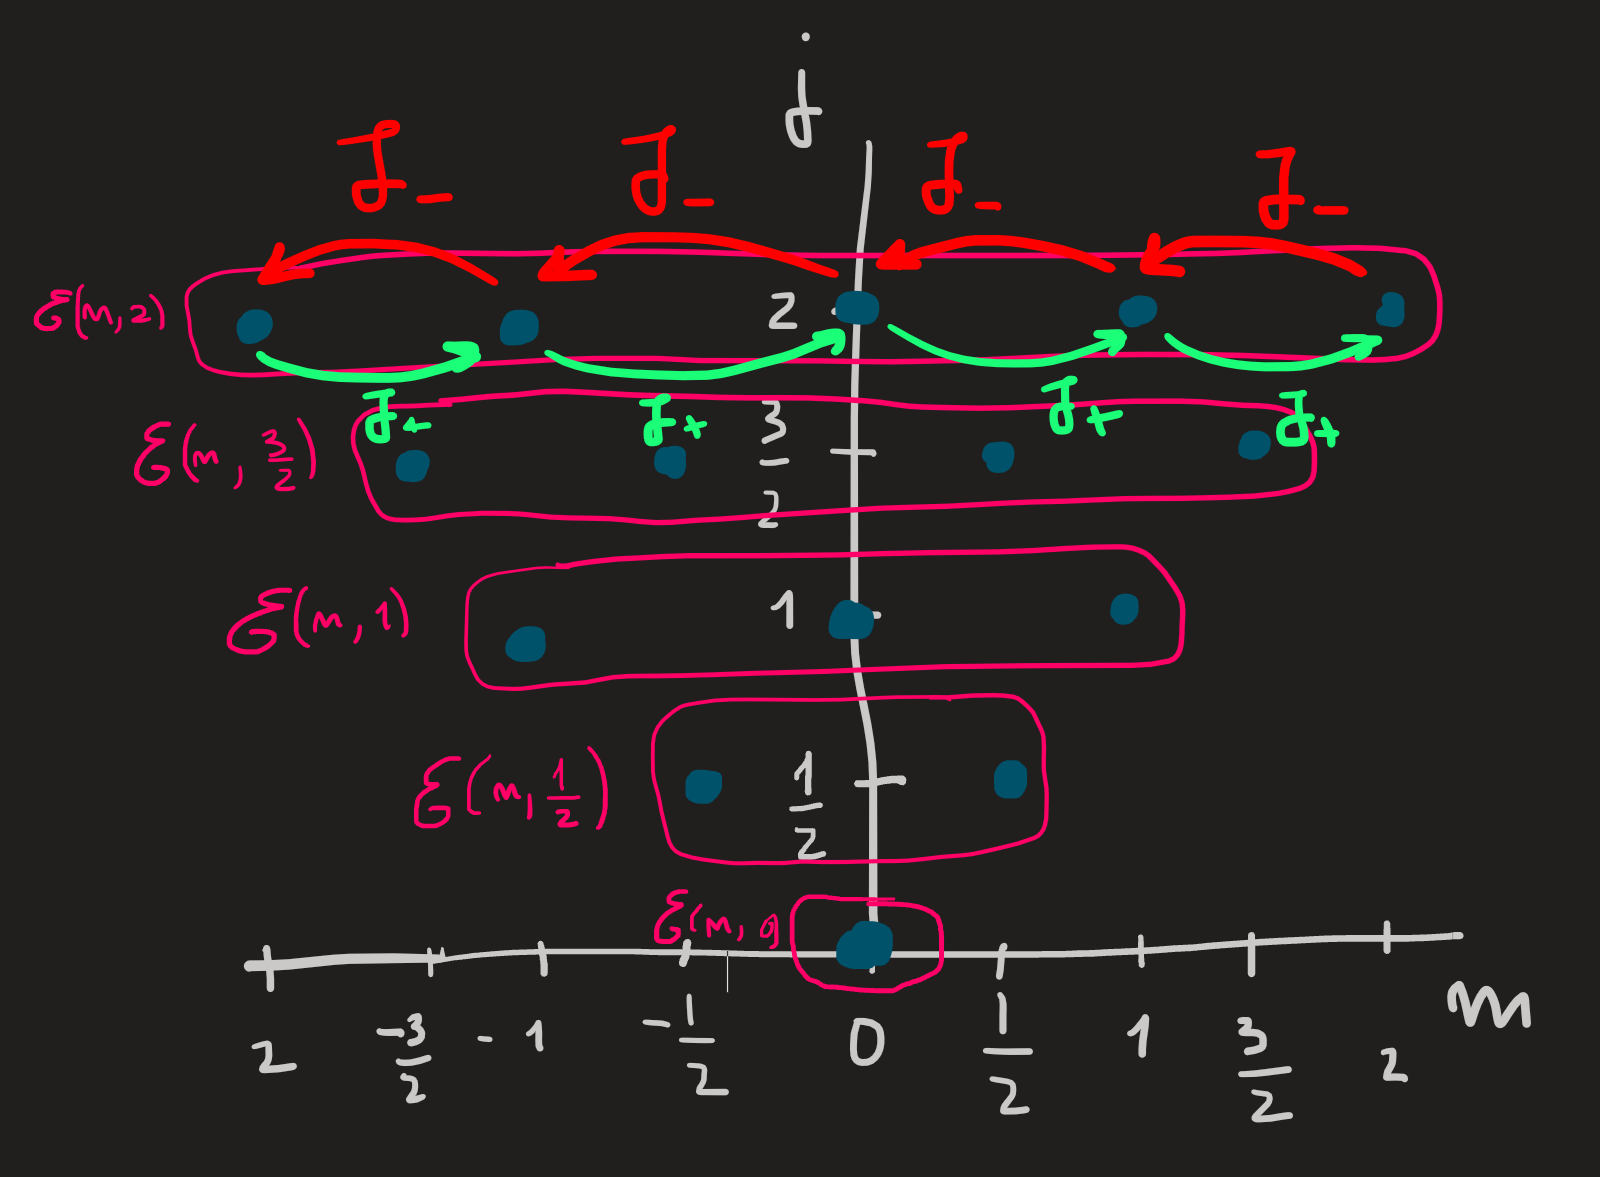 j
J_- J_- J_- J_-
ℰ(m, 2) 2
J_+ J_+ J_+ J_+
ℰ(m, 3/2) 3/2
ℰ(m, 1) 1
ℰ(m, 1/2) 1/2
ℰ(m, 0)
2 -3/2 -1 -1/2 0 1/2 1 3/2 2 m